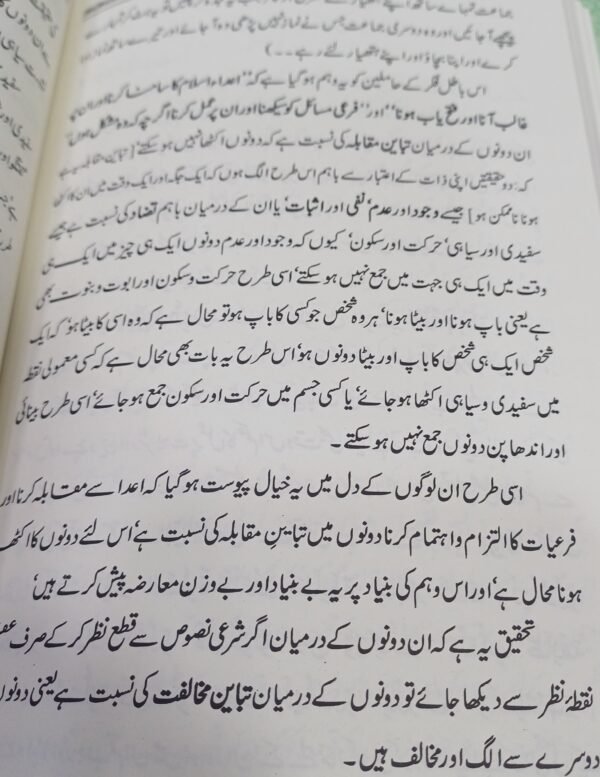 جماعت تمہارے ساتھ اپنے
پیچھے آ جائیں اور وہ دوسری جماعت جس نے نماز نہیں پڑھی وہ آ جائے اور تیرے ساتھ نماز ادا
کرے اور اپنا بچاؤ اور اپنے ہتھیار لئے رہے ۔۔۔)
اس باطل فکر کے حاملین کو یہ وہم ہو گیا ہے کہ ’’اعداء اسلام کا سامنا کرنا اور ان پر
غالب آنا اور فتح یاب ہونا‘‘ اور ’’فرعی مسائل کو سیکھنا اور ان پر عمل کرنا اگرچہ کہ وہ مشکل ہوں‘‘
ان دونوں کے درمیان تباین مقابلہ کی نسبت ہے کہ دونوں اکٹھا نہیں ہو سکتے‘ [تباین مقابلہ یہ ہے
کہ: دو حقیقتیں اپنی ذات کے اعتبار سے باہم اس طرح الگ ہوں کہ ایک جگہ اور ایک وقت میں ان کا اکٹھا
ہونا ناممکن ہو] جیسے وجود اور عدم‘ نفی اور اثبات‘ یا ان کے درمیان باہم تضاد کی نسبت ہے جیسے
سفیدی اور سیاہی‘ حرکت اور سکون‘ کیوں کہ وجود اور عدم دونوں ایک ہی چیز میں ایک ہی
وقت میں ایک ہی جہت میں جمع نہیں ہو سکتے‘ اسی طرح حرکت و سکون اور ابوت و بنوت بھی
ہے یعنی باپ ہونا اور بیٹا ہونا‘ ہر وہ شخص جو کسی کا باپ ہو تو محال ہے کہ وہ اسی کا بیٹا ہو‘ کہ ایک
شخص ایک ہی شخص کا باپ اور بیٹا دونوں ہو‘ اس طرح یہ بات بھی محال ہے کہ کسی معمولی نقطہ
میں سفیدی و سیاہی اکٹھا ہو جائے‘ یا کسی جسم میں حرکت اور سکون جمع ہو جائے‘ اسی طرح بینائی
اور اندھا پن دونوں جمع نہیں ہو سکتے ۔
اسی طرح ان لوگوں کے دل میں یہ خیال پیوست ہو گیا کہ اعدا سے مقابلہ کرنا اور
فرعیات کا التزام و اہتمام کرنا دونوں میں تباینِ مقابلہ کی نسبت ہے‘ اس لئے دونوں کا اکٹھ
ہونا محال ہے‘ اور اس وہم کی بنیاد پر یہ بے بنیاد اور بے وزن معارضہ پیش کرتے ہیں‘
تحقیق یہ ہے کہ ان دونوں کے درمیان اگر شرعی نصوص سے قطع نظر کر کے صرف
نقطۂ نظر سے دیکھا جائے تو دونوں کے درمیان تباین مخالفت کی نسبت ہے یعنی دونوں
دوسرے سے الگ اور مخالف ہیں ۔